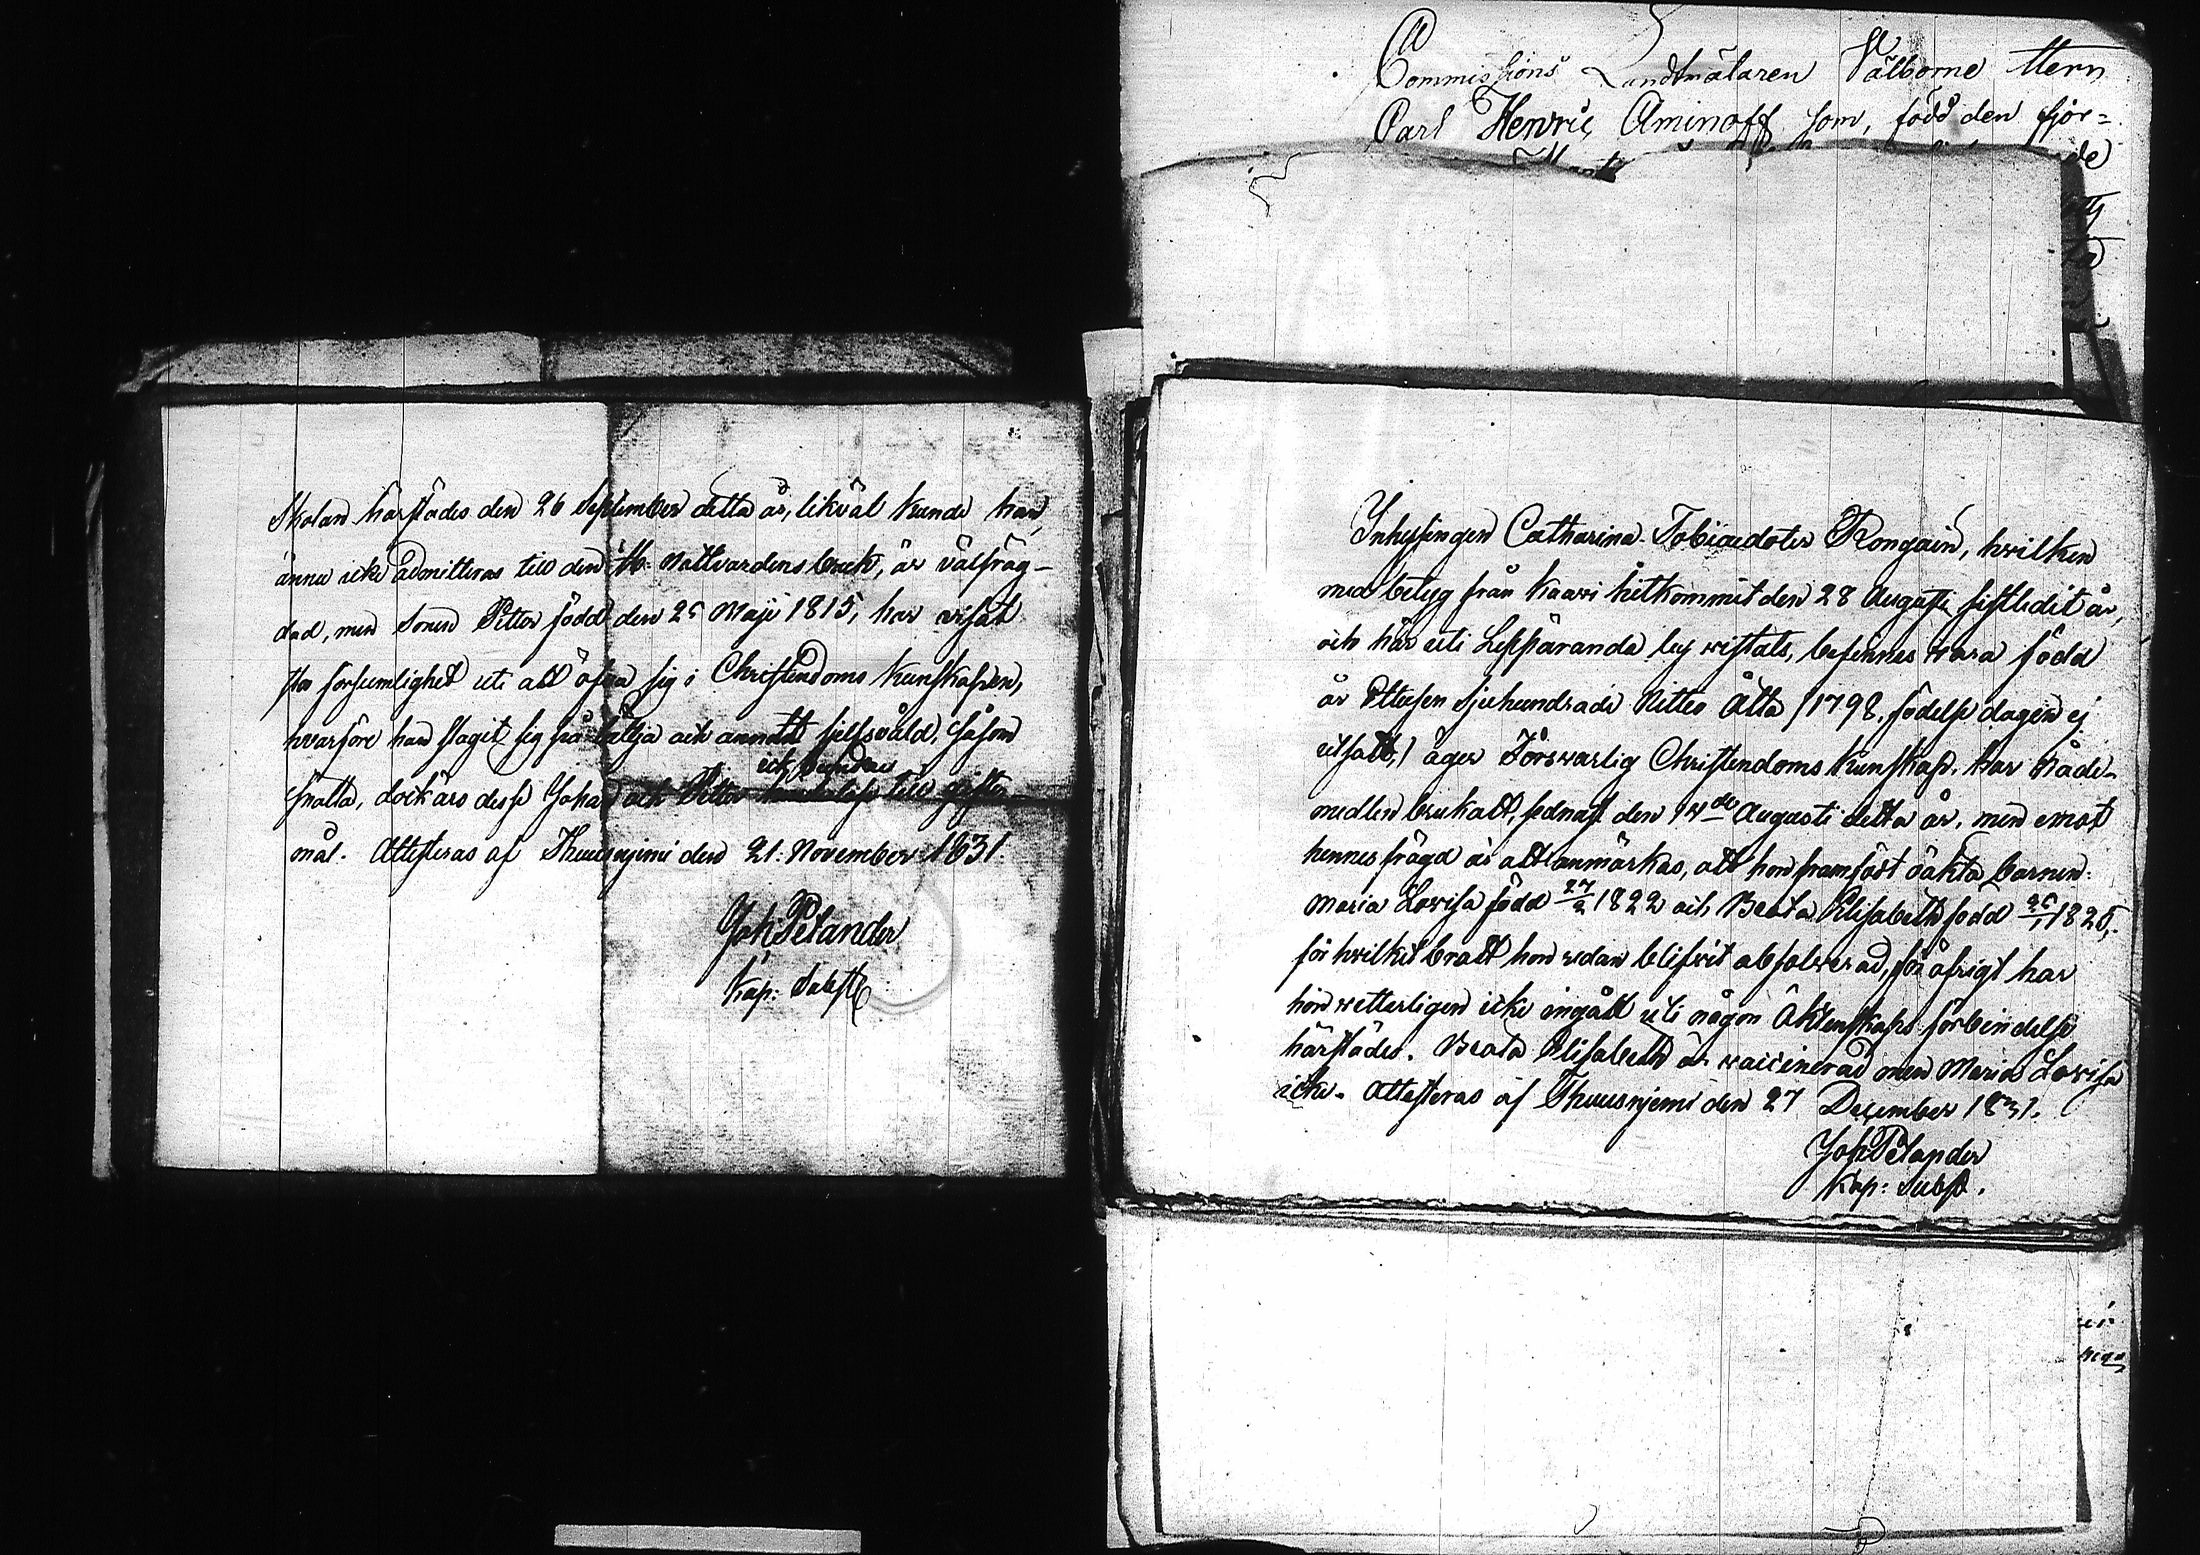 Skolan härstädes den 26 September detta år, likväl kunde han
ännu icke admitteras till den H. Nattvardens bruk, är välfräg-
dad, men Sonen Petter född den 25 Maji 1815, har visat
stor försumlighet uti att öfva sig i Christendoms Kunskapen,
hvarföre han slagit sig på och annat sjelfsvåld, såsom
snatta, dock äro desse Johan och Petter till gifter
icke bundne
mål. Attesteras af Thuusnjemi den 21. November 1831.
Joh Pelander
Kap: Subst
Commissions Landtmätaren Välborne Herr
Carl Henric Aminoff som, född den fjor=
de
Inhysingen Catharina Tobiaedoter Rongain, hvilken
med betyg från Kaavi hitkommit den 28 Augusti sistledit år,
och här uti Leppäranda by vistats, befinnes vara född
år Ettusen Sjuhundrade Nittio Åtta /1798, födelse dagen ej
utsatt,/ äger Försvarlig Christendoms Kunskap, har Nåde-
medlen brukat, sednast den 14de Augusti detta år, men emot
hennes frägd är att anmärkas, att hon framfödt oäkta barnen
Maria Lovisa född 27/2 1822 och Beata Elisabeth född 25/1 1825,
för hvilket brott hon redan blifvit absolverad, för öfrigt har
hon vetterligen icke ingått uti någon Äktenskaps förbindelse
härstädes. Beata Elisabeth är vaccinerad men Maria Lovisa
icke. Attesteras af Thuusnjemi den 27 December 1831.
Joh Pelander
Kap: Subst.